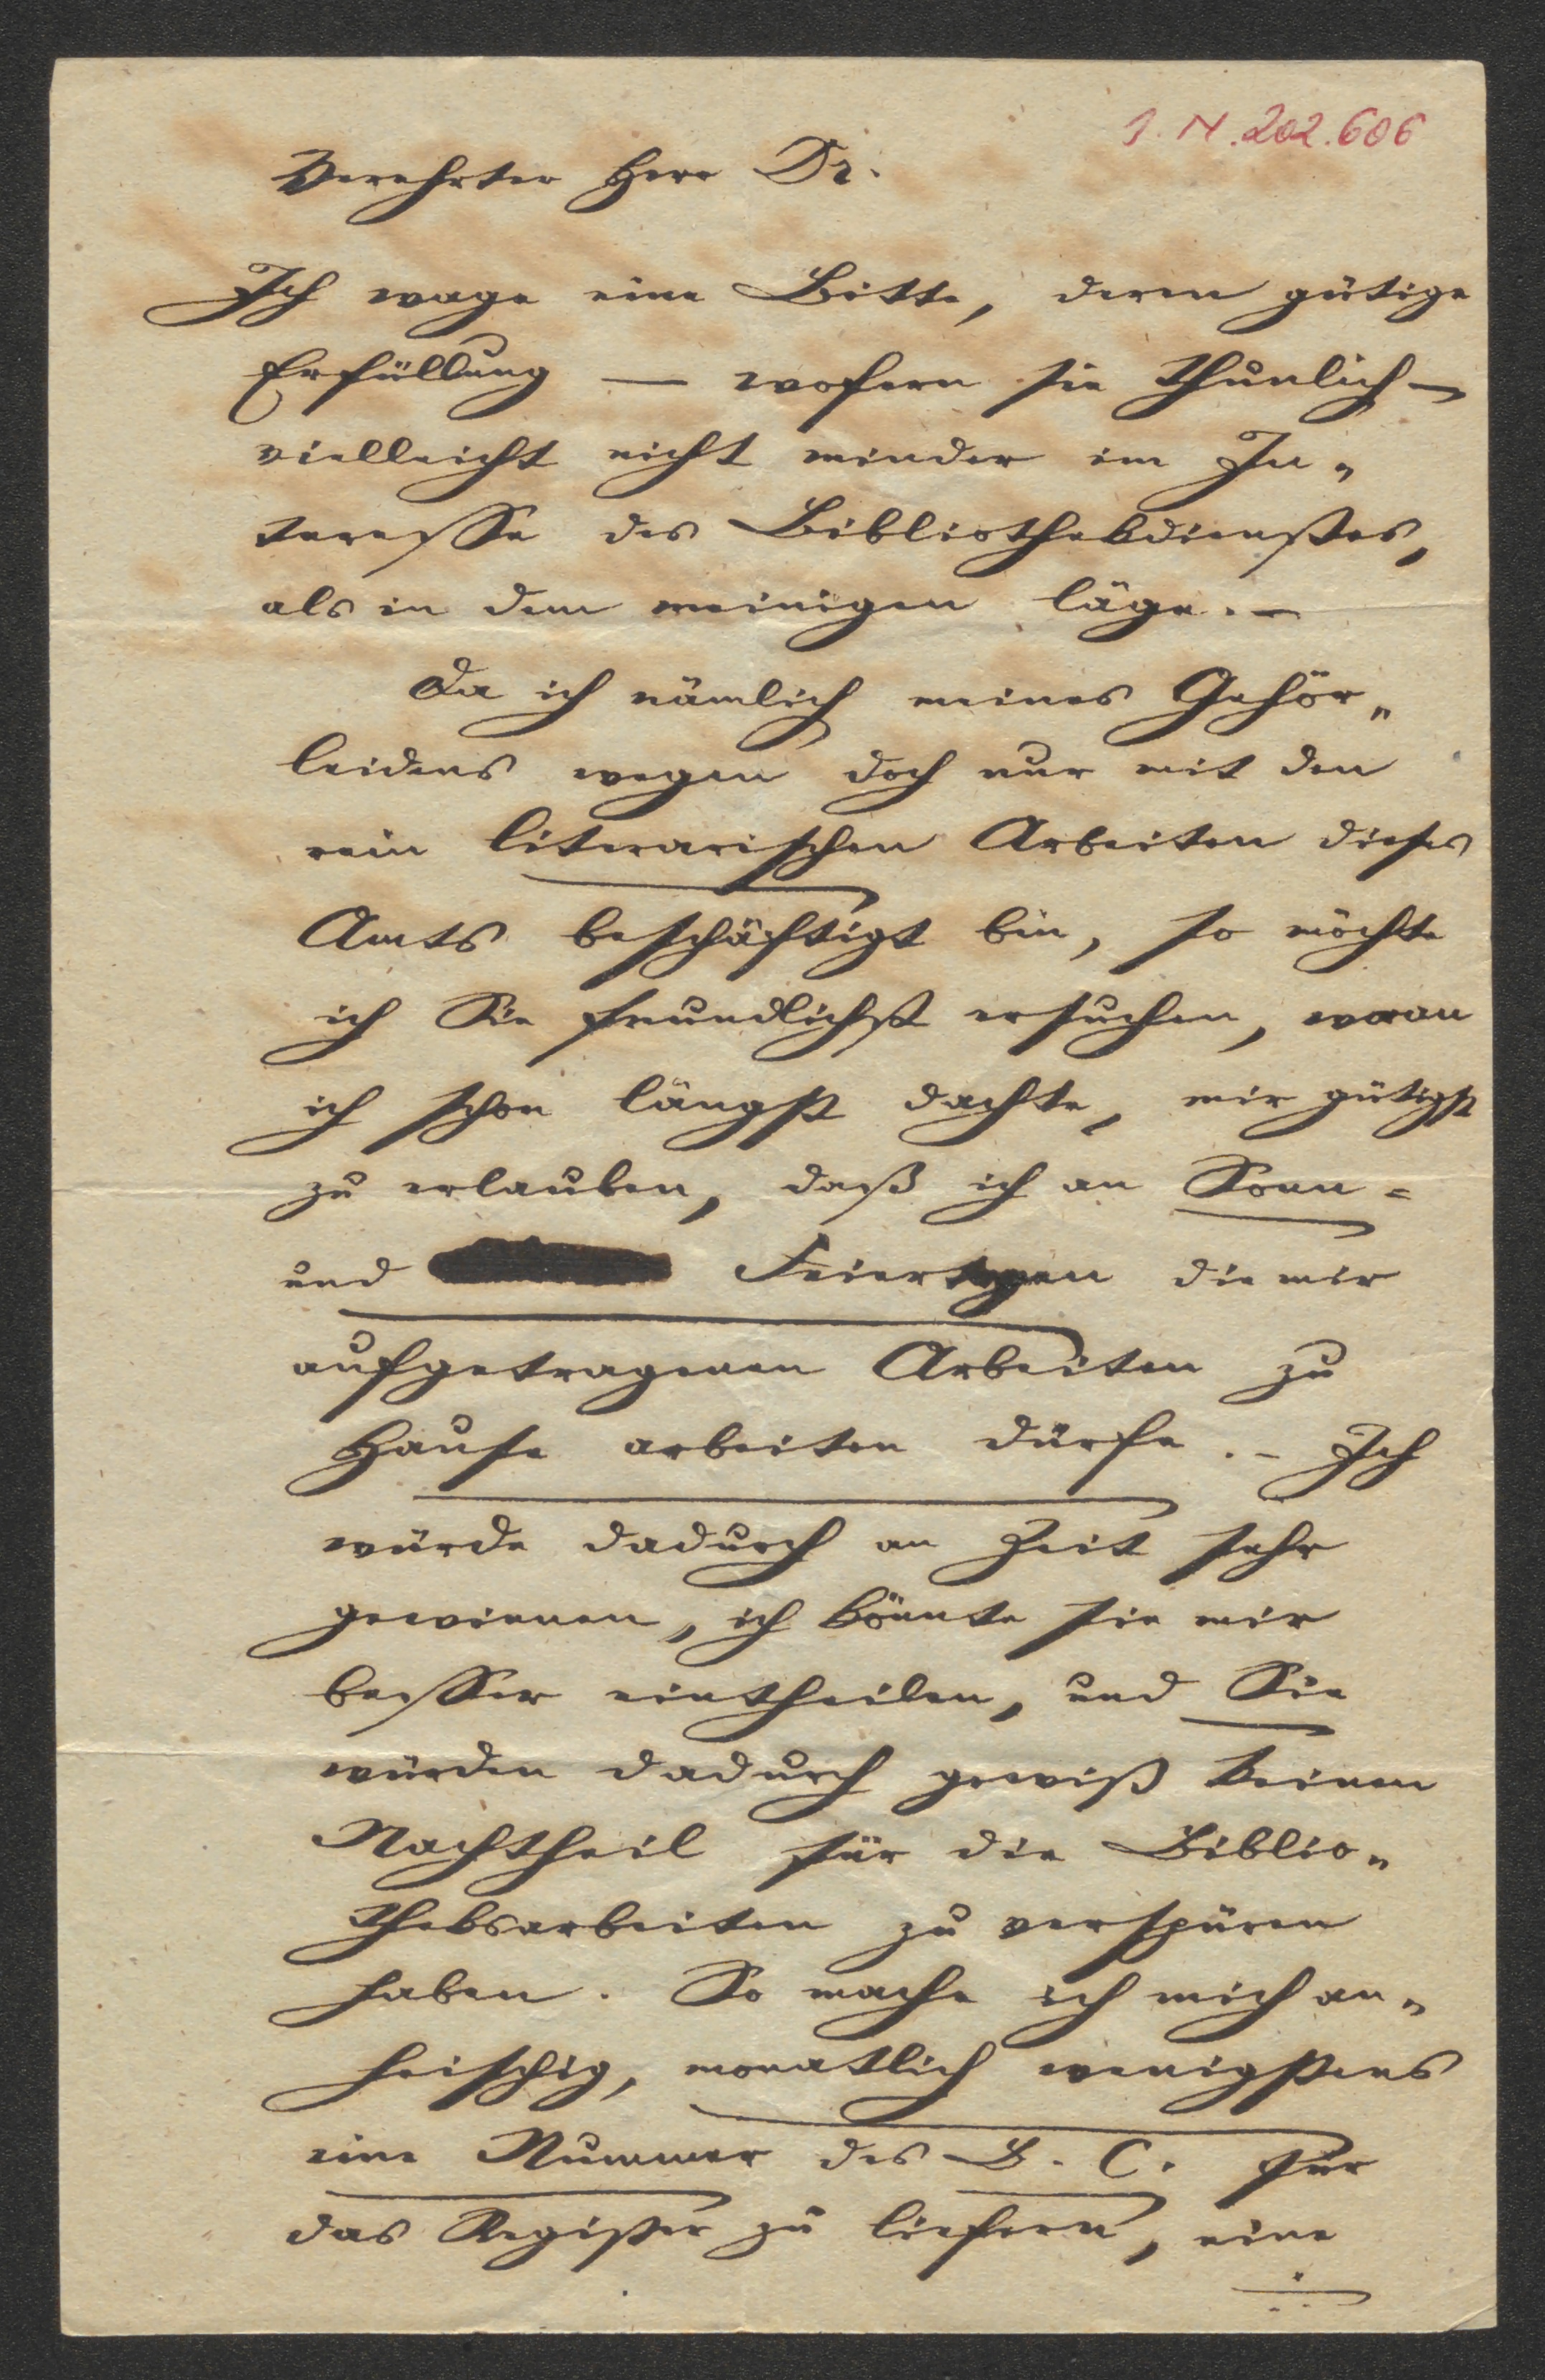 I. N. 202.606
Verehrter Herr Dr.
Ich wage eine Bitte, deren gütige
Erfüllung — wofern sie thunlich —
vielleicht nicht minder im In„
teresse des Bibliothekdienstes,
als in dem meinigen läge. —
Da ich nämlich meines Gehör„
leidens wegen doch nur mit den
rein literarischen Arbeiten dieses
Amts beschäftigt bin, so möchte
ich Sie freundlichst ersuchen, woran
ich schon längst dachte, mir gütigst
zu erlauben, daß ich an Sonn=
und Feiertagen die mir
aufgetragenen Arbeiten zu
Hause arbeiten dürfe. – Ich
würde dadurch an Zeit sehr
gewinnen, ich könnte sie mir
besser eintheilen, und Sie
würden dadurch gewiß keinen
Nachtheil für die Biblio„
theksarbeiten zu verspüren
haben. So mache ich mich an„
heischig, monatlich wenigstens
eine Nummer des B. C. für
das Register zu liefern, eine